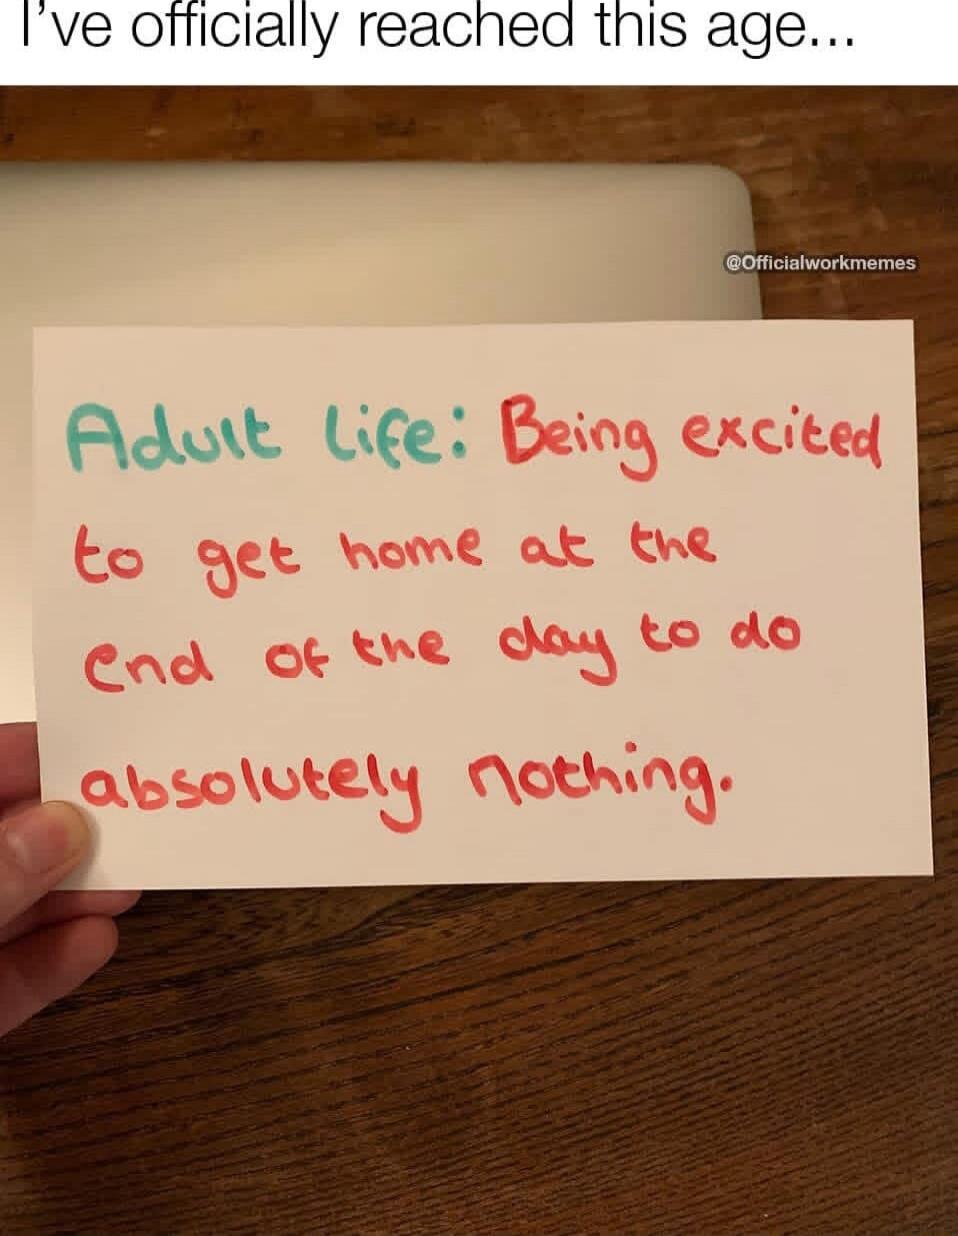 I've officially reached this age...
@Officialworkmemes
Adult life: Being excited
to get home at the
end of the day to do
absolutely nothing.